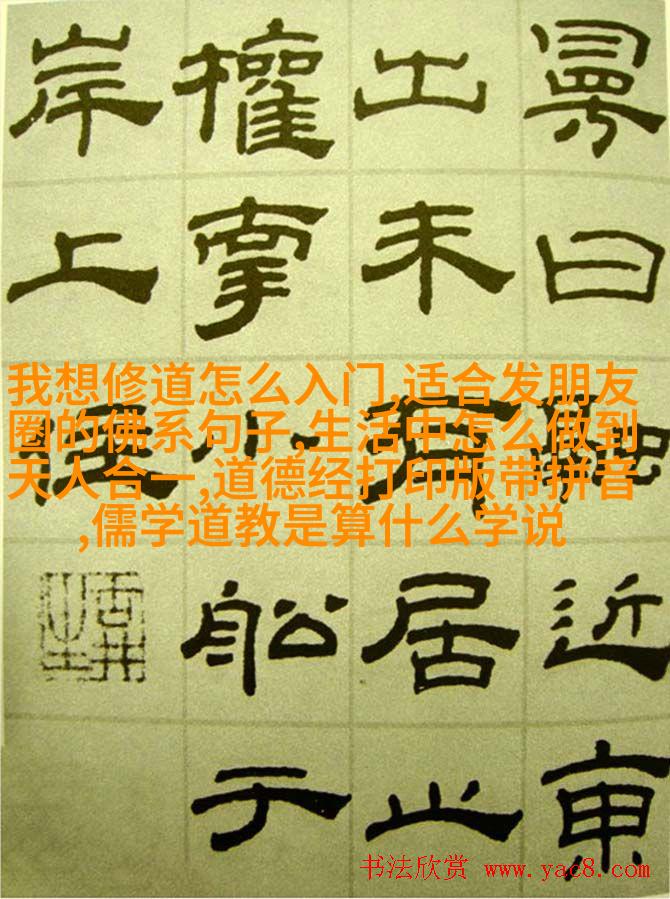 曰融近東
出未有居止
權牽小舩于
岸上住
我想修道怎么入门,适合发朋友
圈的佛系句子,生活中怎么做到
天人合一,道德经打印版带拼音
,儒学道教是算什么学说
书法欣赏 www.yac8.com